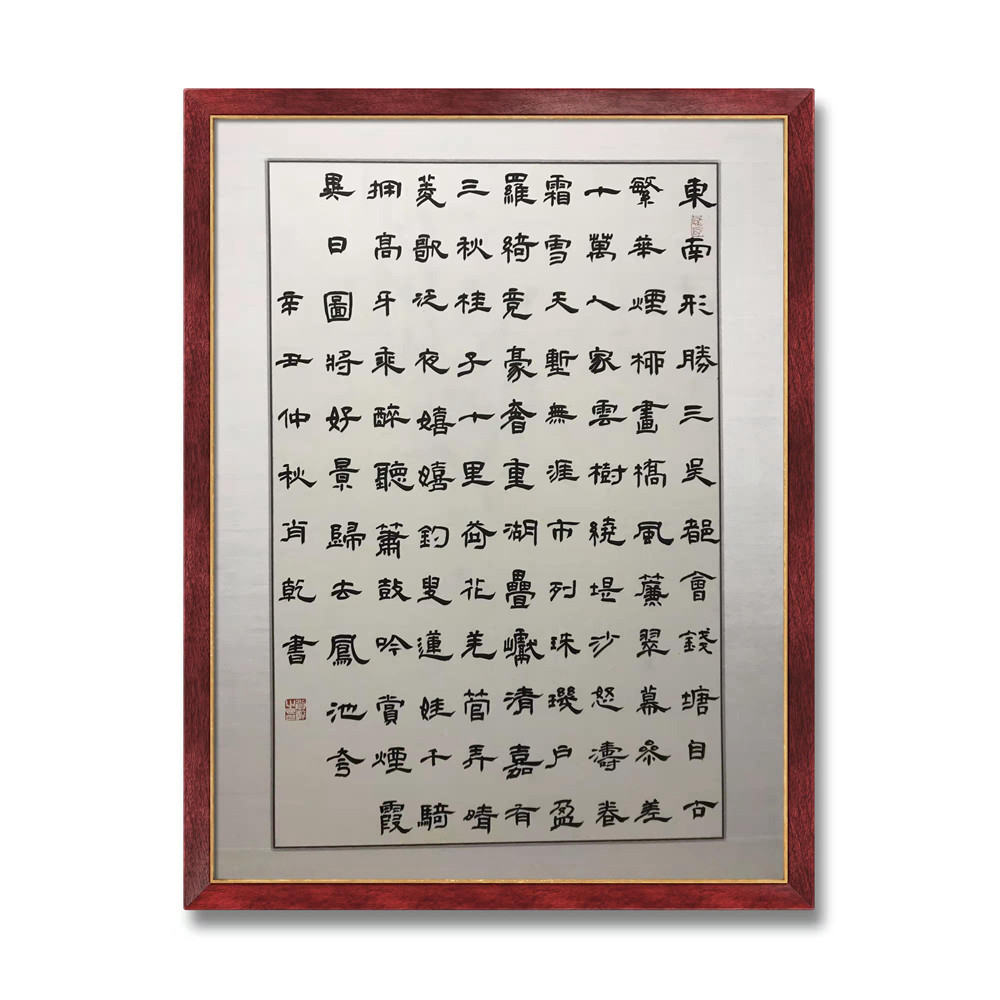 東南形勝三吳都會錢塘自古
繁華煙柳畫橋風簾翠幕參差
十萬人家雲樹繞堤沙怒濤卷
霜雪天塹無涯市列珠璣戶盈
羅綺竞豪奢重湖疊巘清嘉有
三秋桂子十里荷花羌管弄晴
菱歌泛夜嬉嬉釣叟蓮娃千騎
拥高牙乘醉聽簫鼓吟賞煙霞
異日圖將好景歸去鳳池夸
辛丑仲秋肖乾書